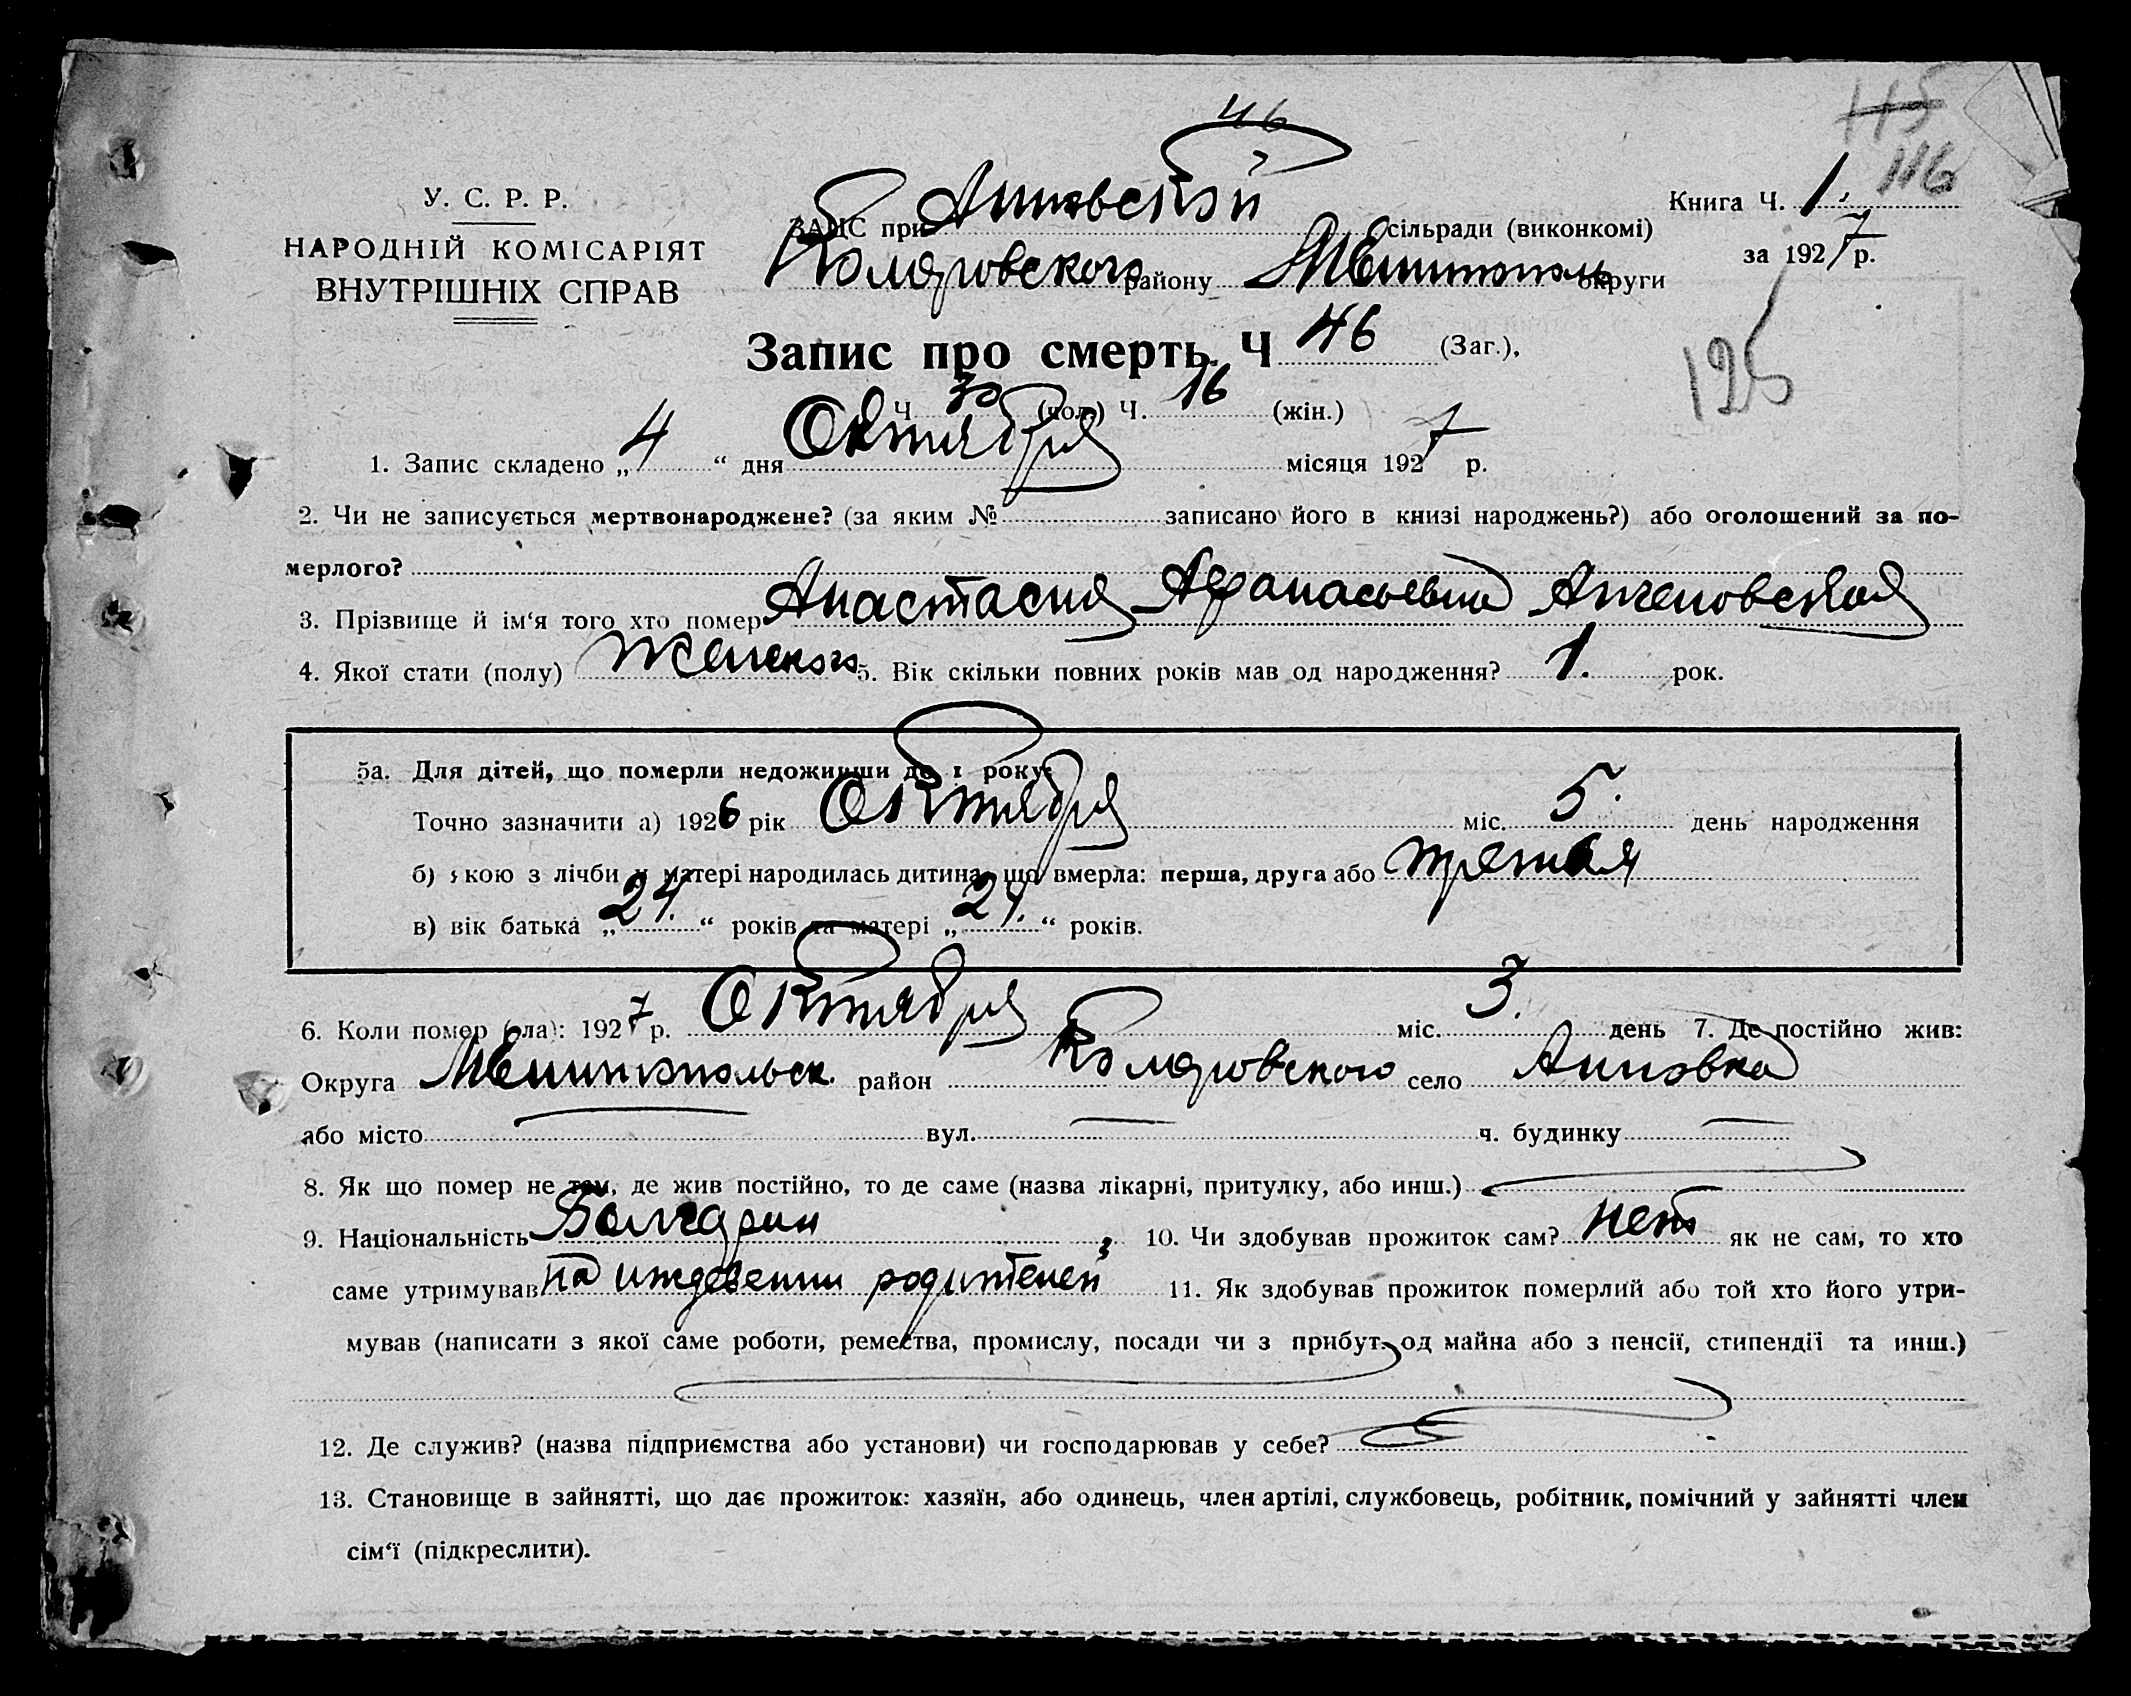 46
115
116
У. С. Р. Р.
НАРОДНІЙ КОМІСАРІЯТ
ВНУТРІШНІХ СПРАВ
ЗАПС при Анновской сільради (виконкомі)
Коларовского району Мелитополь округи
Книга Ч. 1.
за 1927 р.
125
Запис про смерть Ч 46 (Заг.),
Ч 30 (чол.) Ч. 16 (жін.)
1. Запис складено „ 4 “ дня Октября місяця 1927 р.
2. Чи не записується мертвонароджене? (за яким № записано його в книзі народжень?) або оголошений за по-
мерлого?
3. Прізвище й ім‘я того хто помер Анастасия Афанасьевна Ангеловская
4. Якої стати (полу) Женского 5. Вік скільки повних років мав од народження? 1. рок.
5а. Для дітей, що померли недоживши до 1 року:
Точно зазначити а) 1926 рік Октября міс. 5. день народження
б) якою з лічби у матері народилась дитина, що вмерла: перша, друга або третья
в) вік батька „ 24. “ років та матері „ 24. “ років.
6. Коли помер (ла): 1927 р. Октября міс. 3. день 7. Де постійно жив:
Округа Мелитопольск. район Коларовского село Анновка
або місто вул. ч. будинку
8. Як що помер не там, де жив постійно, то де саме (назва лікарні, притулку, або инш.)
9. Національність Болгарин 10. Чи здобував прожиток сам? нет як не сам, то хто
саме утримував на иждевении родителей 11. Як здобував прожиток померлий або той хто його утри-
мував (написати з якої саме роботи, ремества, промислу, посади чи з прибут. од майна або з пенсії, стипендії та инш.)
12. Де служив? (назва підприємства або установи) чи господарював у себе?
13. Становище в зайнятті, що дає прожиток: хазяїн, або одинець, член артілі, службовець, робітник, помічний у зайнятті член
сім‘ї (підкреслити).